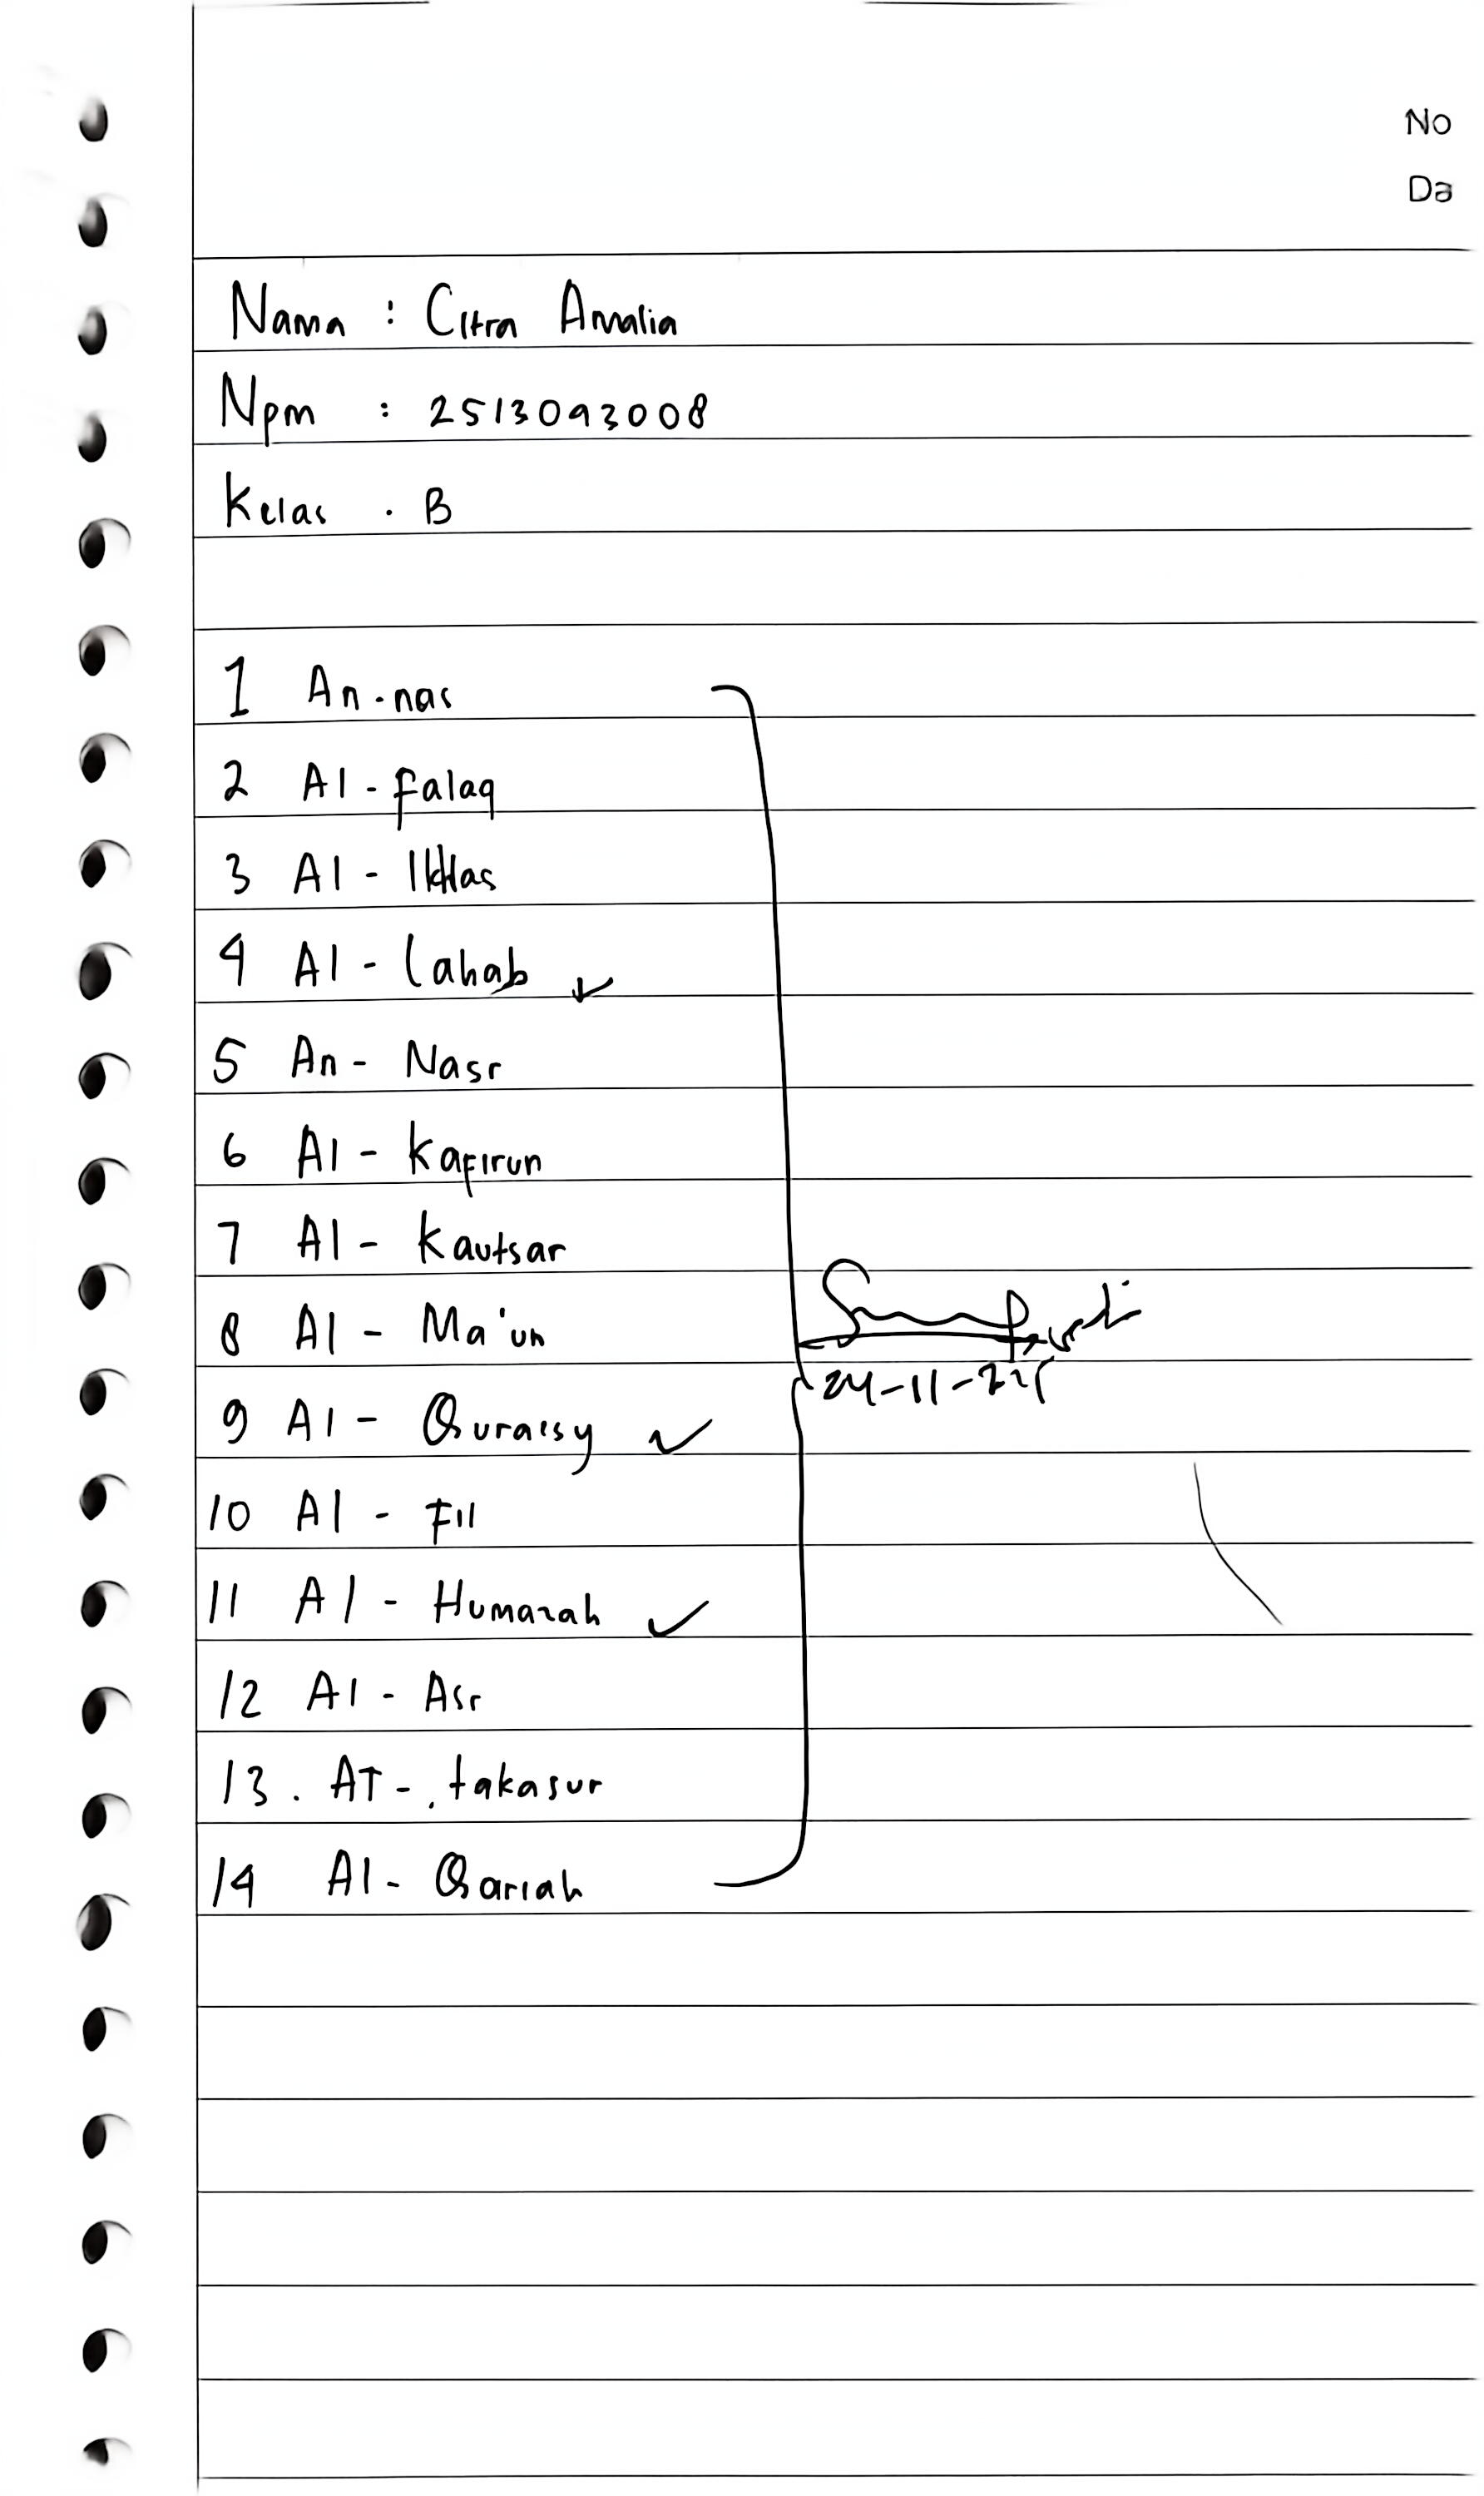 No
Da
Nama : Citra Amalia
Npm : 2513093008
Kelas . B
1 An-nas
2 Al-falaq
3 Al-Ikhlas
4 Al-Lahab ✓
5 An-Nasr
6 Al-kafirun
7 Al-Kautsar
8 Al-Ma'un
9 Al-Quraisy ✓
10 Al-Fil
11 Al-Humazah ✓
12 Al-Asr
13. AT-.takasur
14 Al-Qariah